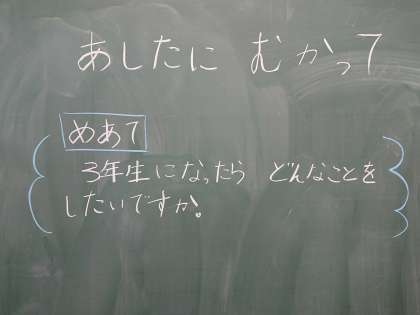 あしたに むかって
めあて
3年生になったら どんなことを
したいですか。